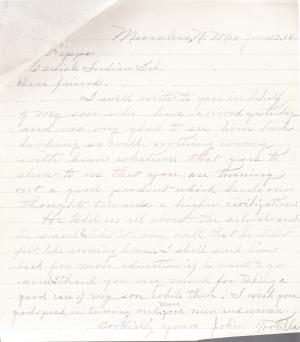 Mescalero, N. Mex June 12, 16
Carlisle Indian Sch.
Dear friend.
I will write to you in behalf
of my son who have arrived yesterday
and was very glad to see him back
looking so well, nothing wrong
with him whatever that goes to
show to us that you are turning
out a good product which leads our
thought towards a higher civilization.
He told us all about the school and
he said like it very well that he didn't
feel like coming home. I shall send him
back for more education if he want to go
and thank you very much for taking a
good care of my son while there. I wish you
godspeed in turning out more good men and women
Cordially yours John Tortilla